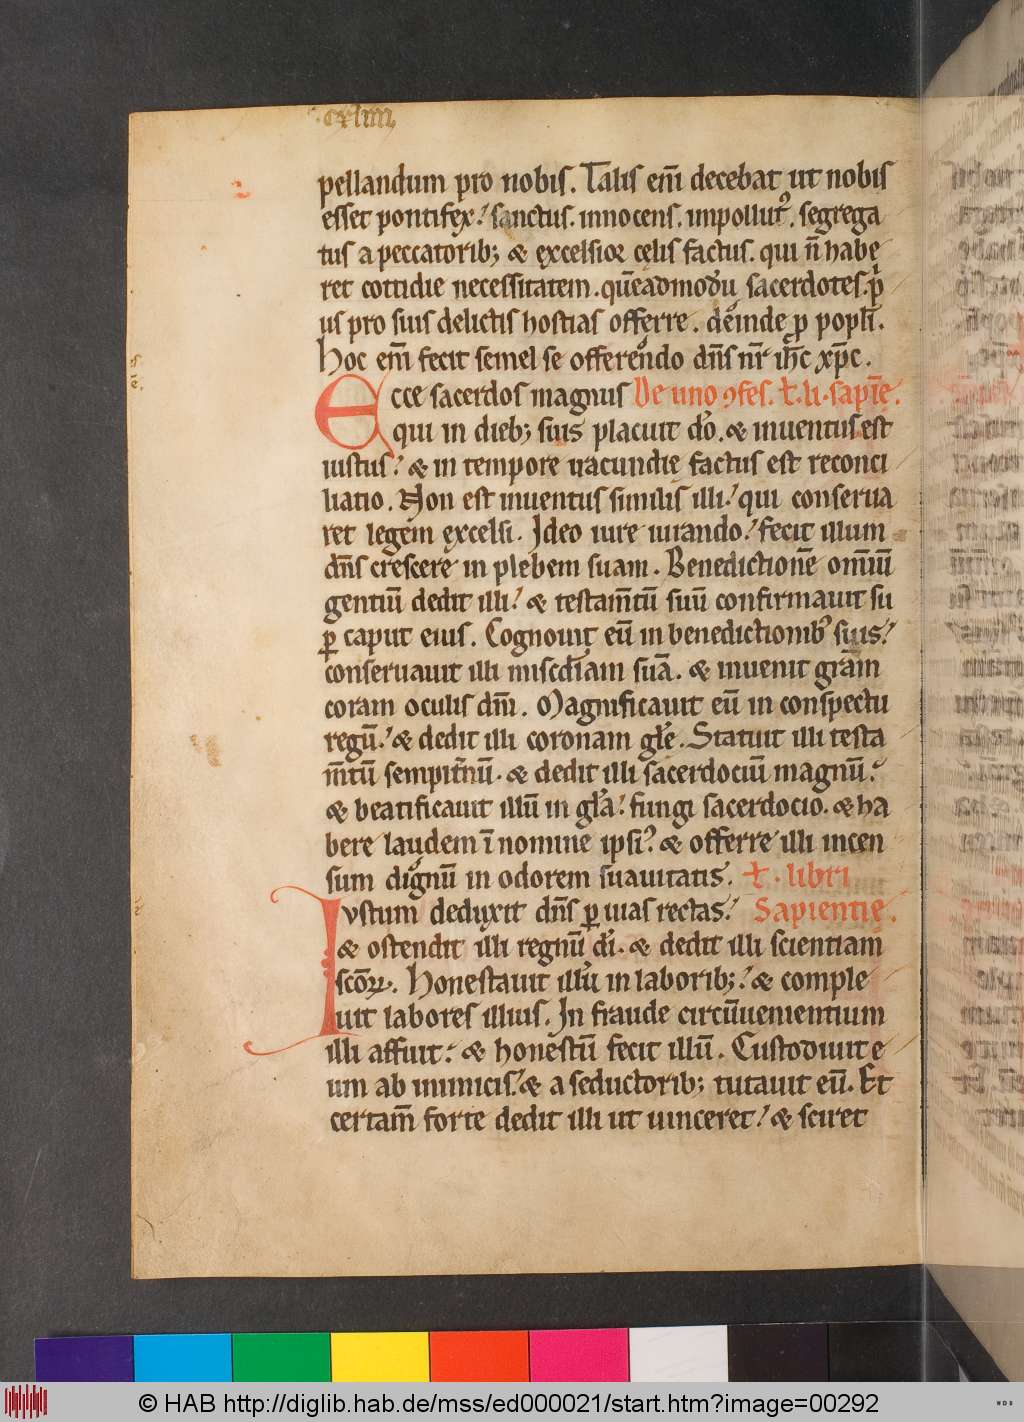 .cxliiii.
pellandum pro nobis. Talis em̄ decebat ut nobis
esset pontifex! sanctus. innocens. impollut᷒. segrega
tus a peccatorib; & excelsior cęlis factus. qui n̄ habe
ret cottidie necessitatem. quēadmodū sacerdotes. pͥ
us pro suis delictis hostias offerre. deinde ꝑ popl̄i.
Hoc em̄ fecit semel se offerendo dn̄s nr̄ ih̄c xp̄c.
Ecce sacerdos magnus De uno ꝯfes. t. li. sapiē.
qui in dieb; suis placuit do. & inuentus est
iustus! & in tempore iracundię factus est reconci
liatio. Non est inuentus similis illi! qui conserua
ret legem excelsi. Ideo iure iurando! fecit illum
dn̄s crescere in plebem suam. Benedictionē omīuī
gentiū dedit illi! & testam̄tū suū confirmauit su
ꝑ caput eius. Cognouit eū in benedictionib᷒ suis!
conseruauit illi misc̄diam suā. & inuenit grām
coram oculis dn̄i. Magnificauit eū in conspectu
regū! & dedit illi coronam gl̄e. Statuit illi testa
m̄tū sempit̄nū. & dedit illi sacerdociū magnū!
& beatificauit illū in gl̄a! fungi sacerdocio. & ha
bere laudem ī nomine ipsi᷒. & offerre illi incen
sum dignū in odorem suauitatis. t. libri
Iustum deduxit dn̄s ꝑ uias rectas! Sapientię.
& ostendit illi regnū di. & dedit illi scientiam
scōꝝ. Honestauit illū in laborib;! & comple
uit labores illius. In fraude circūuenientium
illi affuit! & honestū fecit illū. Custodiuit e
um ab inimicis! & a seductorib; tutauit eū. Et
certam̄ forte dedit illi ut uinceret! & sciret
© HAB http://diglib.hab.de/mss/ed000021/start.htm?image=00292